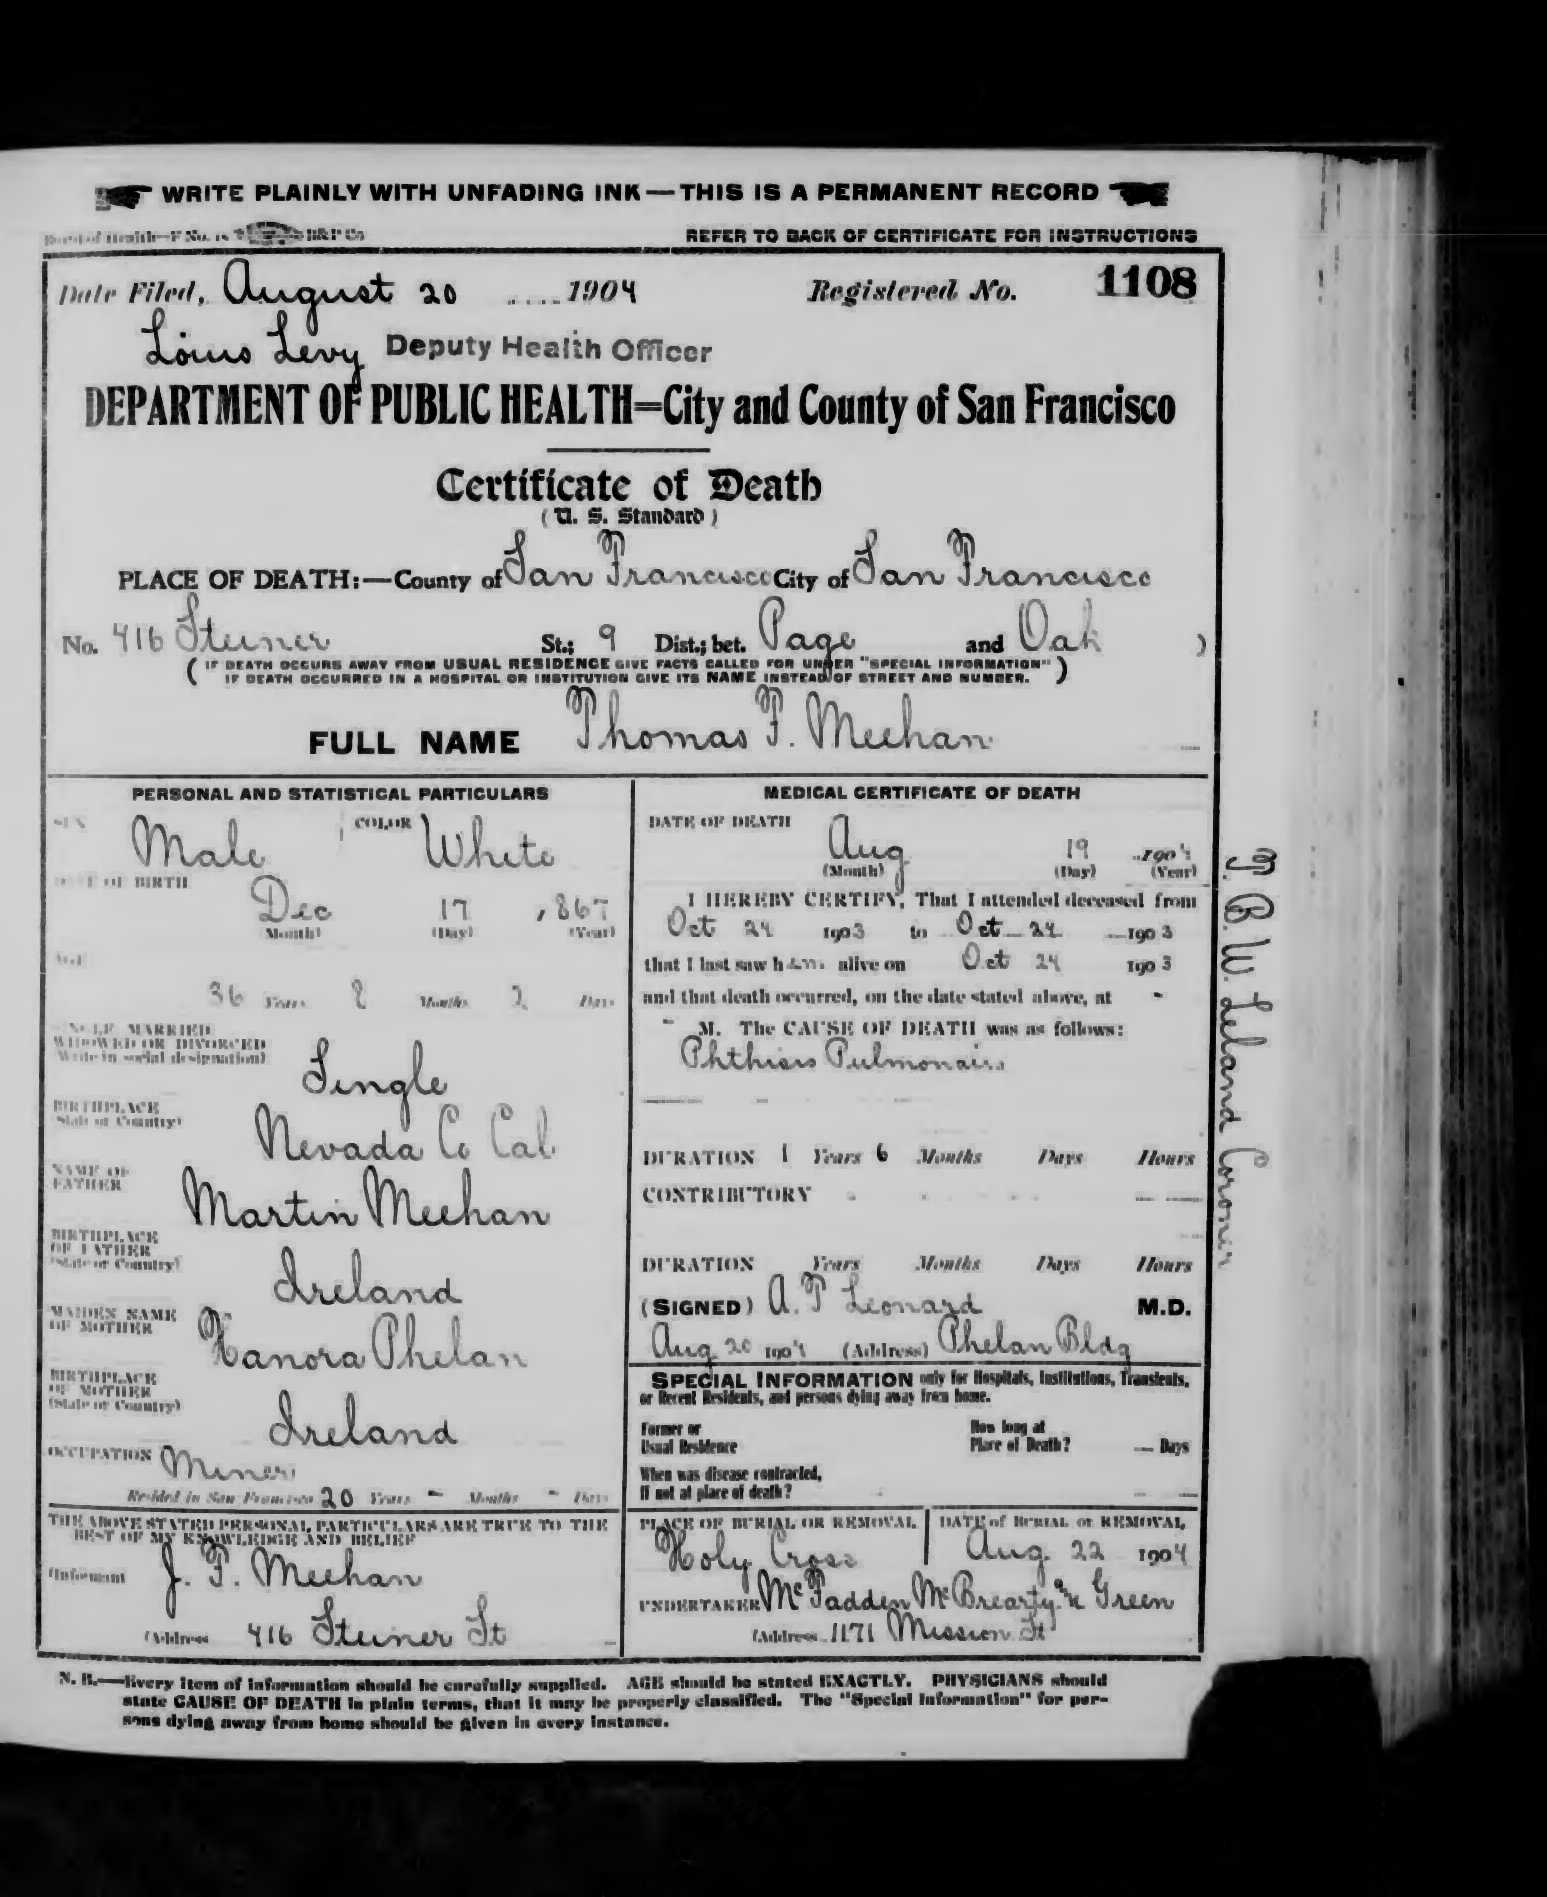 WRITE PLAINLY WITH UNFADING INK — THIS IS A PERMANENT RECORD
Board of Health—F No. B&P Co
REFER TO BACK OF CERTIFICATE FOR INSTRUCTIONS
Date Filed, August 20 1904 Registered No. 1108
Louis Levy Deputy Health Officer
DEPARTMENT OF PUBLIC HEALTH=City and County of San Francisco
Certificate of Death
(U. S. Standard)
PLACE OF DEATH:—County of San Francisco City of San Francisco
No. 416 Steiner St.; 9 Dist.; bet. Page and Oak )
( IF DEATH OCCURS AWAY FROM USUAL RESIDENCE GIVE FACTS CALLED FOR UNDER "SPECIAL INFORMATION" )
IF DEATH OCCURRED IN A HOSPITAL OR INSTITUTION GIVE ITS NAME INSTEAD OF STREET AND NUMBER.
FULL NAME Thomas F. Meehan
PERSONAL AND STATISTICAL PARTICULARS
SEX Male COLOR White
DATE OF BIRTH
Dec 17 , 867
(Month) (Day) (Year)
AGE
36 Years 8 Months 2 Days
SINGLE MARRIED
WIDOWED OR DIVORCED
(Write in social designation)
Single
BIRTHPLACE
(State or Country)
Nevada Co Cal
NAME OF
FATHER
Martin Meehan
BIRTHPLACE
OF FATHER
(State or Country)
Ireland
MAIDEN NAME
OF MOTHER
Hanora Phelan
BIRTHPLACE
OF MOTHER
(State or Country)
Ireland
OCCUPATION Miner
Resided in San Francisco 20 Years - Months - Days
THE ABOVE STATED PERSONAL PARTICULARS ARE TRUE TO THE
BEST OF MY KNOWLEDGE AND BELIEF
(Informant J. F. Meehan
(Address 416 Steiner St
MEDICAL CERTIFICATE OF DEATH
DATE OF DEATH
Aug 19 1904
(Month) (Day) (Year)
I HEREBY CERTIFY, That I attended deceased from
Oct 24 1903 to Oct 24 1903
that I last saw him alive on Oct 24 1903
and that death occurred, on the date stated above, at -
- M. The CAUSE OF DEATH was as follows:
Phthisis Pulmonairs
DURATION 1 Years 6 Months Days Hours
CONTRIBUTORY
DURATION Years Months Days Hours
(SIGNED) A. F Leonard M.D.
Aug 20 1904 (Address) Phelan Bldg
SPECIAL INFORMATION only for Hospitals, Institutions, Transients,
or Recent Residents, and persons dying away from home.
Former or
Usual Residence
How long at
Place of Death? — Days
When was disease contracted,
If not at place of death?
PLACE OF BURIAL OR REMOVAL
Holy Cross
DATE of BURIAL or REMOVAL
Aug 22 1904
UNDERTAKER McFadden McBrearty & Green
(Address 1171 Mission St
T. B. W. Leland Coroner
N. B.—Every item of information should be carefully supplied. AGE should be stated EXACTLY. PHYSICIANS should
state CAUSE OF DEATH in plain terms, that it may be properly classified. The "Special Information" for per-
sons dying away from home should be given in every instance.